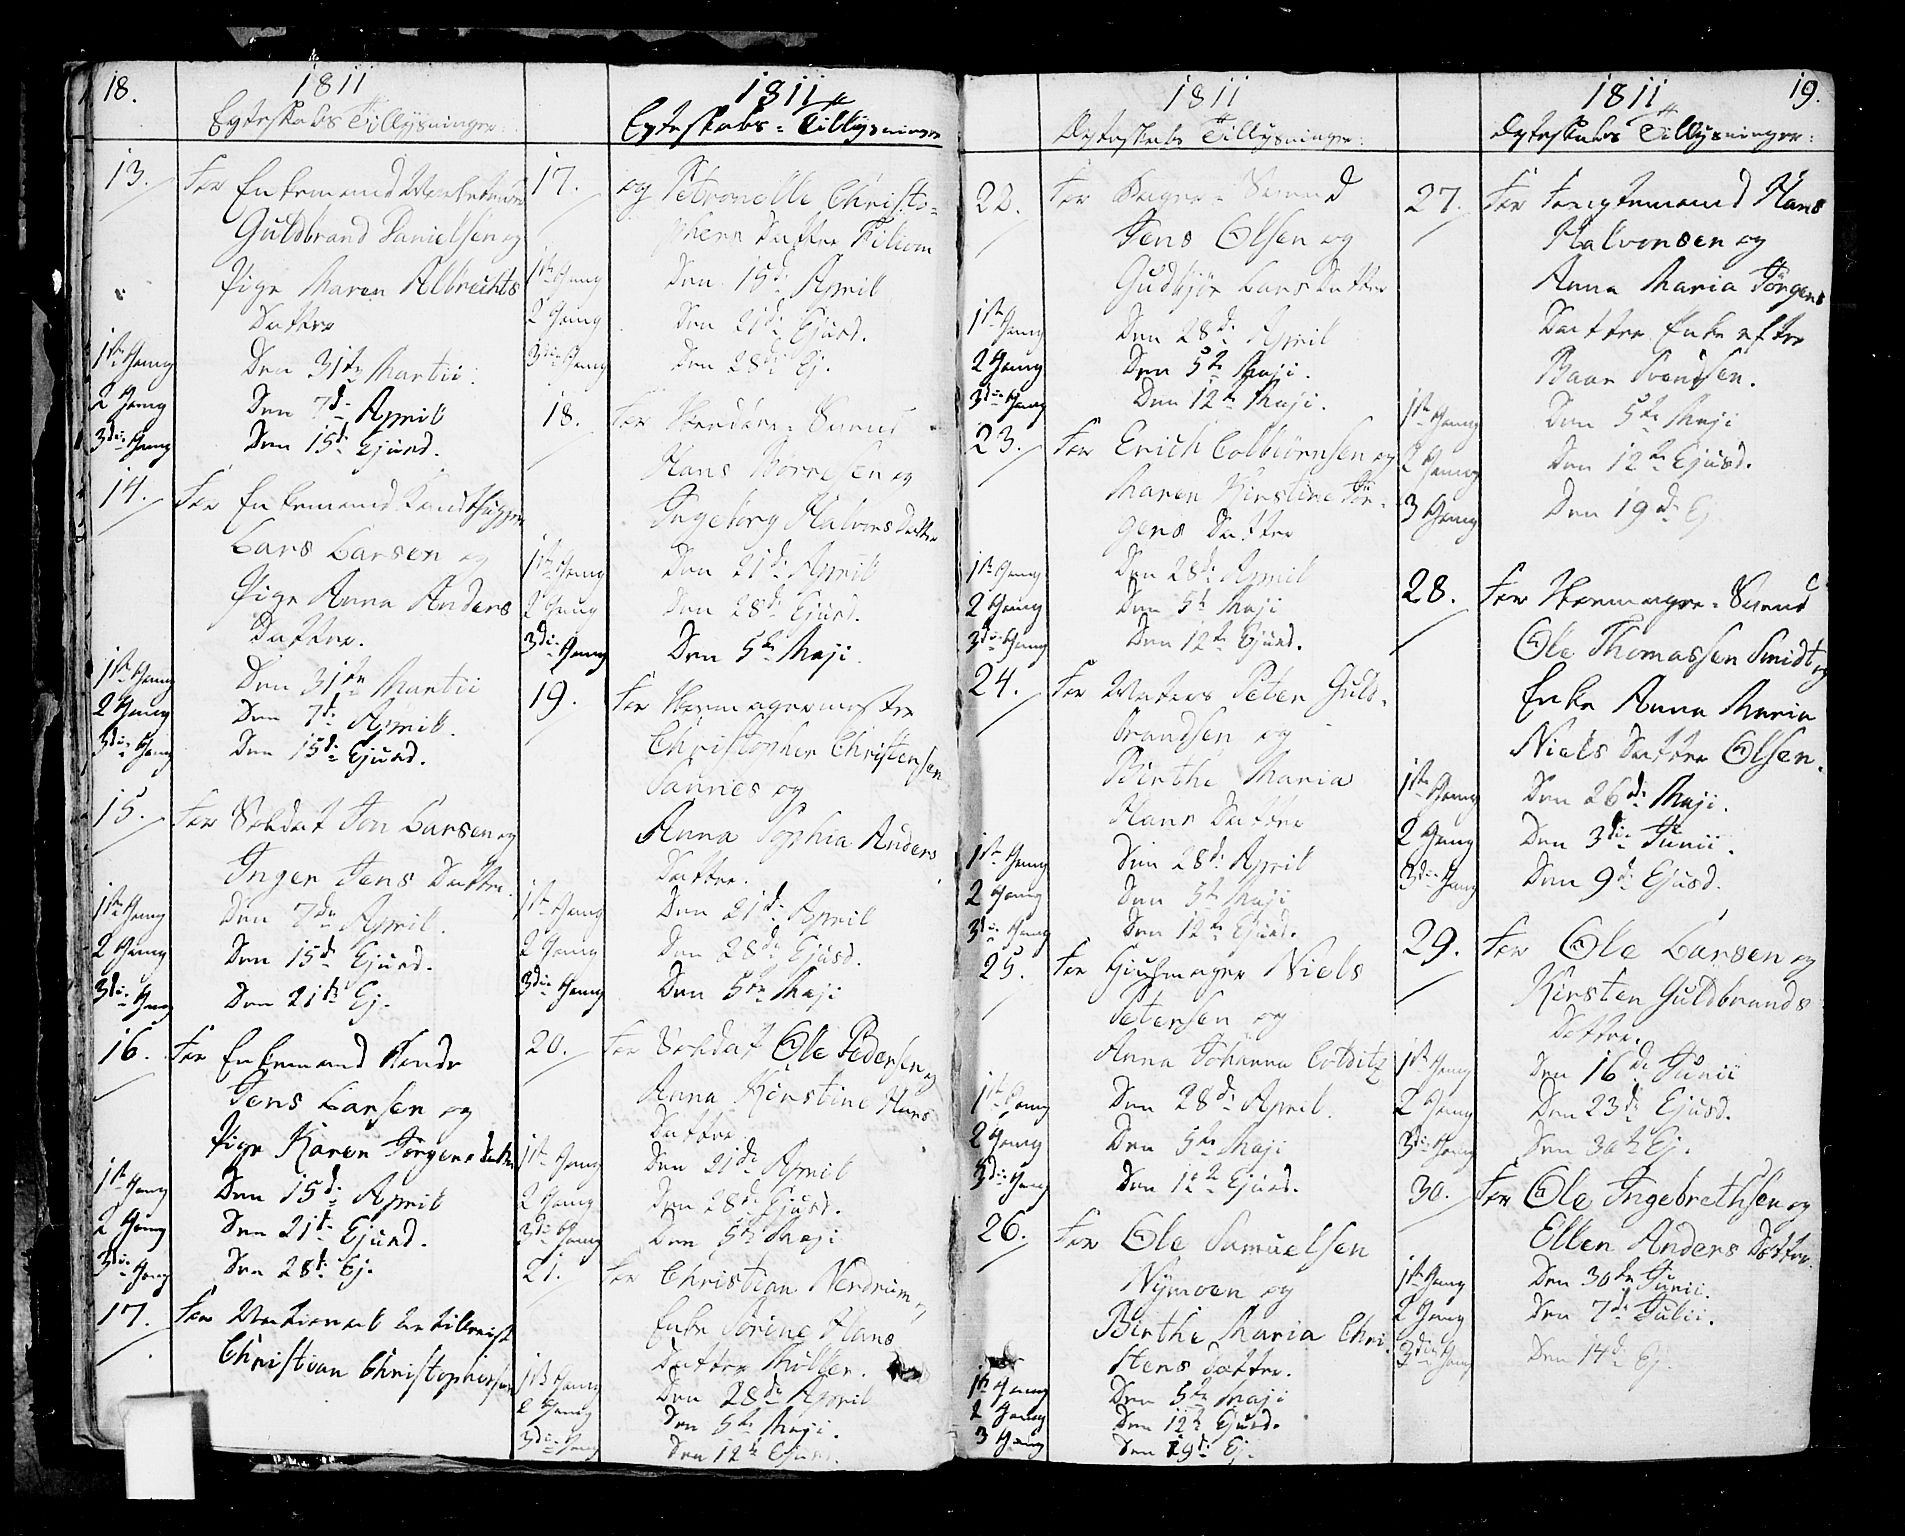 18.
1811
Egteskabs Tillysninger:
13. For Enkemand
Guldbrand Danielsen og
Pige Maren Albrechts
Datter
1ste Gang Den 31te Martii.
2 Gang Den 7de April
3die Gang Den 15de Ejusd.
14. For Enkemand
Lars Larsen og
Pige Anna Anders
Datter.
1ste Gang Den 31te Martii
2 Gang Den 7de April.
3die Gang Den 15de Ejusd.
15. For Soldat Jon Larsen og
Inger Jens Datter.
1ste Gang Den 7de April.
2 Gang Den 15de Ejusd.
3die Gang Den 21de Ej.
16. For Enkemand
Jens Larsen og
Pige Karen Jørgens Datter
1ste Gang Den 15de April
2 Gang Den 21de Ejusd.
3die Gang Den 28de Ej.
17. For
Christian Christophersen
1811
Egteskabs-Tillysninger
17. og Petronelle Christo-
phers Datter
1ste Gang Den 15de April
2 Gang Den 21de Ejusd.
3die Gang Den 28de Ej.
18. For Svend
Hans Borresen og
Ingeborg Halvors Datter
1ste Gang Den 21de April
2 Gang Den 28de Ejusd.
3die Gang Den 5te Maji.
19. For
Christopher Christensen
Sannes og
Anna Sophia Anders
Datter.
1ste Gang Den 21de April
2 Gang Den 28de Ejusd.
3die Gang Den 5te Maji
20. For Soldat Ole Pedersen og
Anna Kirstine Hans
Datter
1ste Gang Den 21de April
2 Gang Den 28de Ejusd.
3die Gang Den 5te Maji
21. For Christian Nerdrum og
Enke Sorine Hans
Datter Møller.
1ste Gang Den 28de April
2 Gang Den 5te Maji.
3die Gang Den 12te Ejusd.
1811
Egteskabs Tillysninger:
22. For Svend
Jens Olsen og
Gudbjør Lars Datter
1ste Gang Den 28de April
2 Gang Den 5te Maji.
3die Gang Den 12te Maji.
23. For Erich Colbiørnsen og
Maren Kirstine Jør-
gens Datter
1ste Gang Den 28de April
2 Gang Den 5te Maji
3die Gang Den 12te Ejusd.
24. For Peter Guld-
brandsen og
Birthe Maria
Hans Datter
1ste Gang Den 28de April
2 Gang Den 5te Maji
3die Gang Den 12te Ejusd.
25. For Hiulmager Niels
Petersen og
Anna Johanna Colditz
1ste Gang Den 28de April.
2 Gang Den 5te Maji
3die Gang Den 12te Ejusd.
26. For Ole Samuelsen
Nymoen og
Birthe Maria Chri-
stens Datter.
1ste Gang Den 5te Maji
2 Gang Den 12te Ejusd.
3 Gang Den 19de Ej.
1811
19.
Egteskabs Tillysninger:
27. For Hans
Halvorsen og
Anna Maria Jørgens
Datter Enke efter
Baar Svendsen.
1ste Gang Den 5te Maji
2 Gang Den 12te Ejusd.
3 Gang Den 19de Ej
28. For Svend
Ole Thomassen Smidt og
Enke Anna Maria
Niels Datter Olsen.
1ste Gang Den 26de Maji.
2 Gang Den 3die Junii.
3die Gang Den 9de Ejusd.
29. For Ole Larsen og
Kirsten Guldbrands
Datter.
1ste Gang Den 16de Junii
2 Gang Den 23de Ejusd.
3die Gang Den 30te Ej.
30. For Ole Ingebrethsen og
Ellen Anders Datter.
1ste Gang Den 30te Junii.
2 Gang Den 7de Julii.
3die Gang Den 14de Ej.